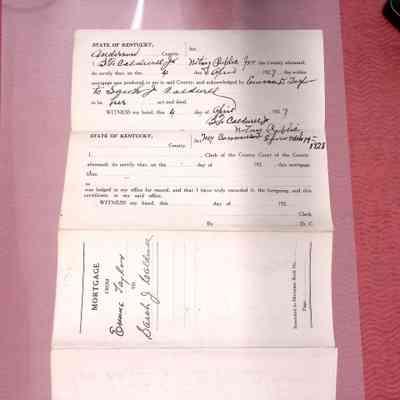 STATE OF KENTUCKY,
Anderson County. Sct.
I, Caldwell Jr Notary Public for the County aforesaid,
do certify that on the 4 day of April 1927 the within
mortgage was produced to me in said County and acknowledged by
to Sarah J Caldwell
to be her act and deed.
WITNESS my hand, this 4 day of April 7
Caldwell Jr
Notary Public
STATE OF KENTUCKY, My 1928
County. Sct.
I, Clerk of the County Court of the County
aforesaid, do certify that on the day of 192 , this mortgage
was lodged in my office for record, and that I have truly recorded it, the foregoing, and this
certificate, in my said office.
WITNESS my hand, this day of 192
Clerk
By D. C.
MORTGAGE
FROM
Emma Taylor
TO
Sarah J Caldwell
Recorded in Mortgage Book No.
Page